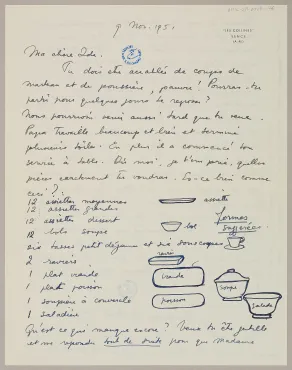 9 Nov. 1951
Ma chère Ida.
Tu dois être accablée de coups de
marteau et de poussière, pauvre! Pourras-tu
partir pour quelques jours te reposer?
Nous pourrions venir aussi tard que tu veux.
Papa travaille beaucoup et bien et terminé
plusieurs toiles. En plus il a commencé ton
service à table. Dis moi, je t'en prie, quelles
pièces exactement tu voudras. Est-ce bien comme
ceci?:
12 assiettes moyennes
12 assiettes grandes
12 assiettes dessert
12 bols soupe
six tasses petit déjeuné et six soucoupes
2 raviers
1 plat viande
1 plat poisson
1 soupière à couvercle
1 saladier
assiette
bol
formes
suggérées
ravier
viande
poisson
soupe
salade
Qu'est ce qui manque encore? Veux tu être gentille
et me répondre tout de suite pour que Madame